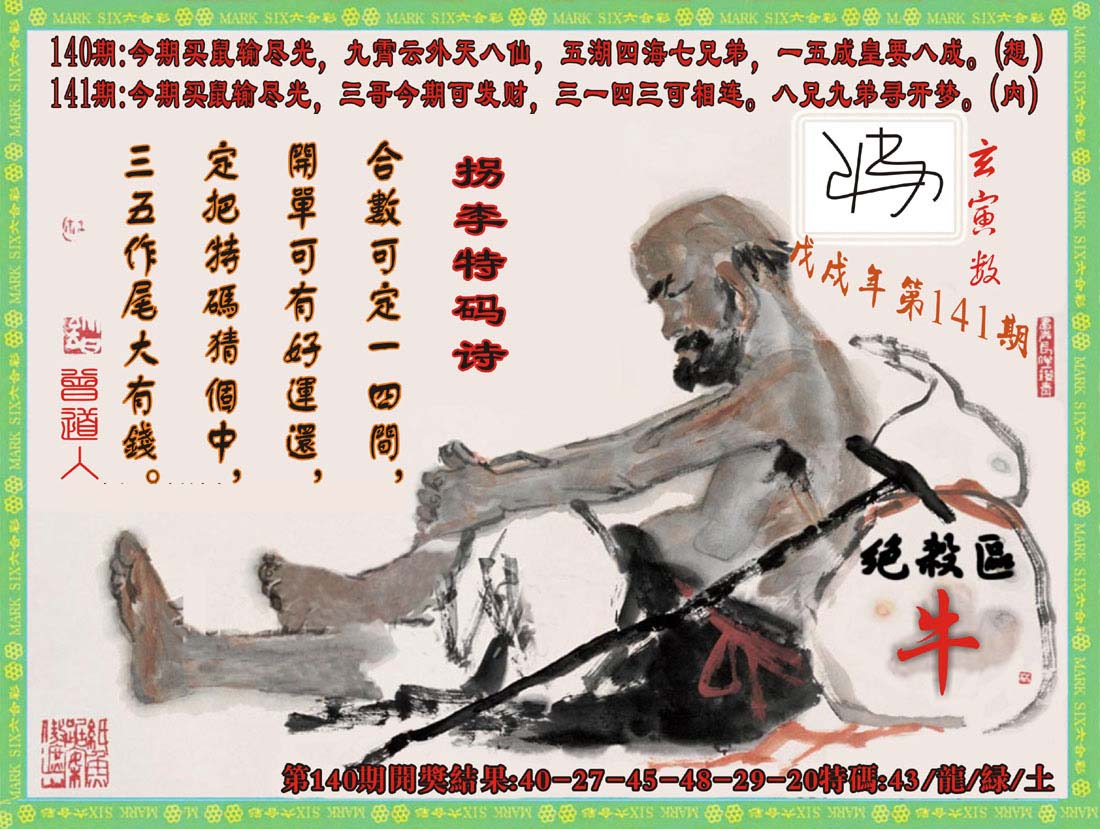 MARK SIX六合彩
140期:今期买鼠输尽光，九霄云外天八仙，五湖四海七兄弟，一五成皇要八成。(想)
141期:今期买鼠输尽光，三哥今期可发财，三一四三可相连。八兄九弟寻开梦。(内)
玄寅数
戊戌年第141期
拐李特码诗
合數可定一四間，
開單可有好運還，
定把特碼猜個中，
三五作尾大有錢。
曾道人
绝殺區
牛
第140期開獎結果:40-27-45-48-29-20特碼:43/龍/緑/土